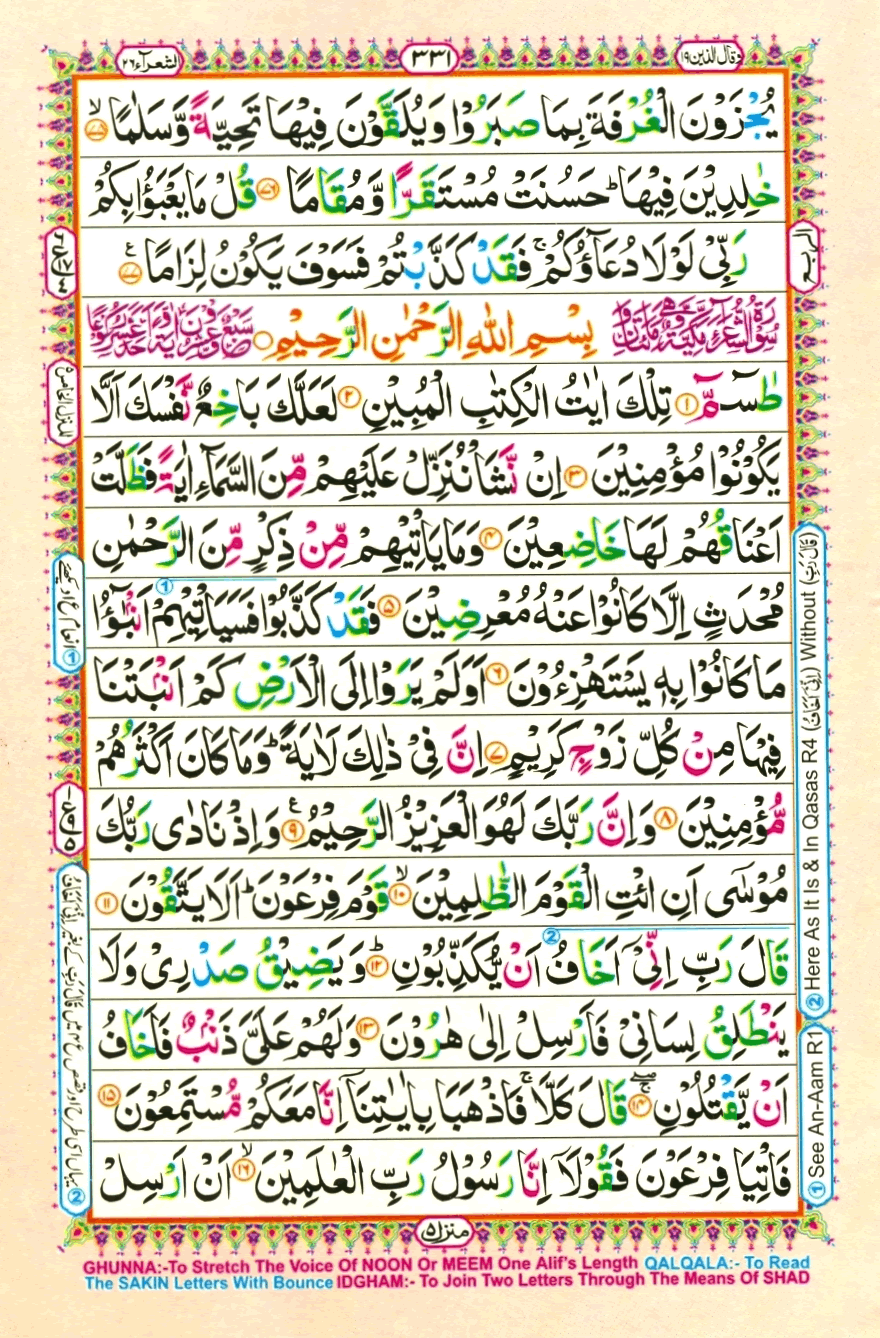 وقال الذين ١٩
٣٣١
الشعرآء ٢٦
يُجْزَوْنَ الْغُرْفَةَ بِمَا صَبَرُوْا وَيُلَقَّوْنَ فِيْهَا تَحِيَّةً وَّسَلٰمًا ﴿٧٥﴾ۙ
خٰلِدِيْنَ فِيْهَا ؕ حَسُنَتْ مُسْتَقَرًّا وَّمُقَامًا ﴿٧٦﴾ قُلْ مَا يَعْبَؤُا بِكُمْ
رَبِّيْ لَوْلَا دُعَآؤُكُمْ ۚ فَقَدْ كَذَّبْتُمْ فَسَوْفَ يَكُوْنُ لِزَامًا ﴿٧٧﴾ع
بِسْمِ اللهِ الرَّحْمٰنِ الرَّحِيْمِ
طٰسٓمّٓ ﴿١﴾ تِلْكَ اٰيٰتُ الْكِتٰبِ الْمُبِيْنِ ﴿٢﴾ لَعَلَّكَ بَاخِعٌ نَّفْسَكَ اَلَّا
يَكُوْنُوْا مُؤْمِنِيْنَ ﴿٣﴾ اِنْ نَّشَاْ نُنَزِّلْ عَلَيْهِمْ مِّنَ السَّمَآءِ اٰيَةً فَظَلَّتْ
اَعْنَاقُهُمْ لَهَا خَاضِعِيْنَ ﴿٤﴾ وَمَا يَاْتِيْهِمْ مِّنْ ذِكْرٍ مِّنَ الرَّحْمٰنِ
مُحْدَثٍ اِلَّا كَانُوْا عَنْهُ مُعْرِضِيْنَ ﴿٥﴾ فَقَدْ كَذَّبُوْا فَسَيَاْتِيْهِمْ اَنْۢبٰٓؤُا
مَا كَانُوْا بِهٖ يَسْتَهْزِءُوْنَ ﴿٦﴾ اَوَلَمْ يَرَوْا اِلَى الْاَرْضِ كَمْ اَنْۢبَتْنَا
فِيْهَا مِنْ كُلِّ زَوْجٍ كَرِيْمٍ ﴿٧﴾ اِنَّ فِيْ ذٰلِكَ لَاٰيَةً ؕ وَمَا كَانَ اَكْثَرُهُمْ
مُّؤْمِنِيْنَ ﴿٨﴾ وَاِنَّ رَبَّكَ لَهُوَ الْعَزِيْزُ الرَّحِيْمُ ﴿٩﴾ع وَاِذْ نَادٰى رَبُّكَ
مُوْسٰٓى اَنِ ائْتِ الْقَوْمَ الظّٰلِمِيْنَ ﴿١٠﴾ۙ قَوْمَ فِرْعَوْنَ ؕ اَلَا يَتَّقُوْنَ ﴿١١﴾
قَالَ رَبِّ اِنِّيْٓ اَخَافُ اَنْ يُّكَذِّبُوْنِ ﴿١٢﴾ؕ وَيَضِيْقُ صَدْرِيْ وَلَا
يَنْطَلِقُ لِسَانِيْ فَاَرْسِلْ اِلٰى هٰرُوْنَ ﴿١٣﴾ وَلَهُمْ عَلَيَّ ذَنْۢبٌ فَاَخَافُ
اَنْ يَّقْتُلُوْنِ ﴿١٤﴾ قَالَ كَلَّا ۚ فَاذْهَبَا بِاٰيٰتِنَآ اِنَّا مَعَكُمْ مُّسْتَمِعُوْنَ ﴿١٥﴾
فَاْتِيَا فِرْعَوْنَ فَقُوْلَآ اِنَّا رَسُوْلُ رَبِّ الْعٰلَمِيْنَ ﴿١٦﴾ۙ اَنْ اَرْسِلْ
منزل ٥
① See An-Aam R1 ② Here As It Is & In Qasas R4 (اِنِّيْٓ اَخَافُ) Without (قَالَ رَبِّ)
GHUNNA:-To Stretch The Voice Of NOON Or MEEM One Alif's Length QALQALA:- To Read
The SAKIN Letters With Bounce IDGHAM:- To Join Two Letters Through The Means Of SHAD